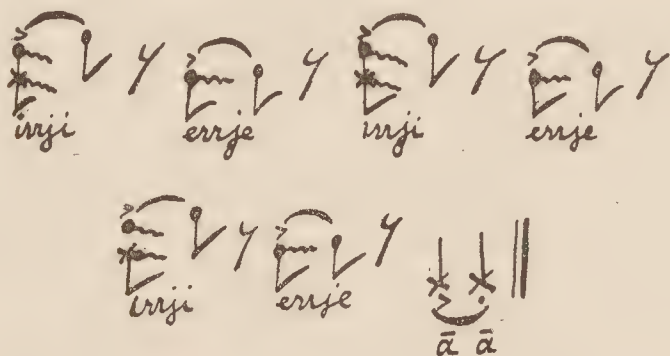 irrji errje irrji errje
irrji errje ā ā